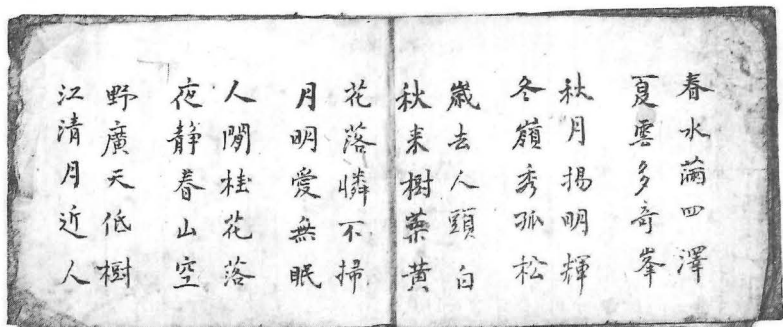 春水滿四澤
夏雲多奇峯
秋月揚明輝
冬嶺秀孤松
歲去人頭白
秋来樹葉黄
花落憐不掃
月明愛無眠
人閒桂花落
夜静春山空
野廣天低樹
江清月近人